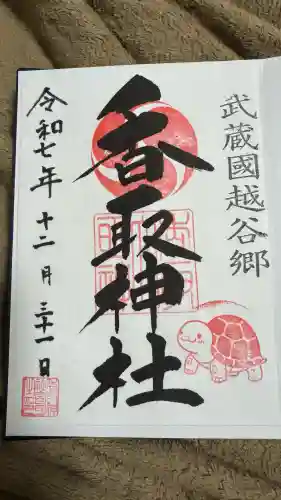 武蔵國越谷郷
香取神社
令和七年 十二月 三十一日